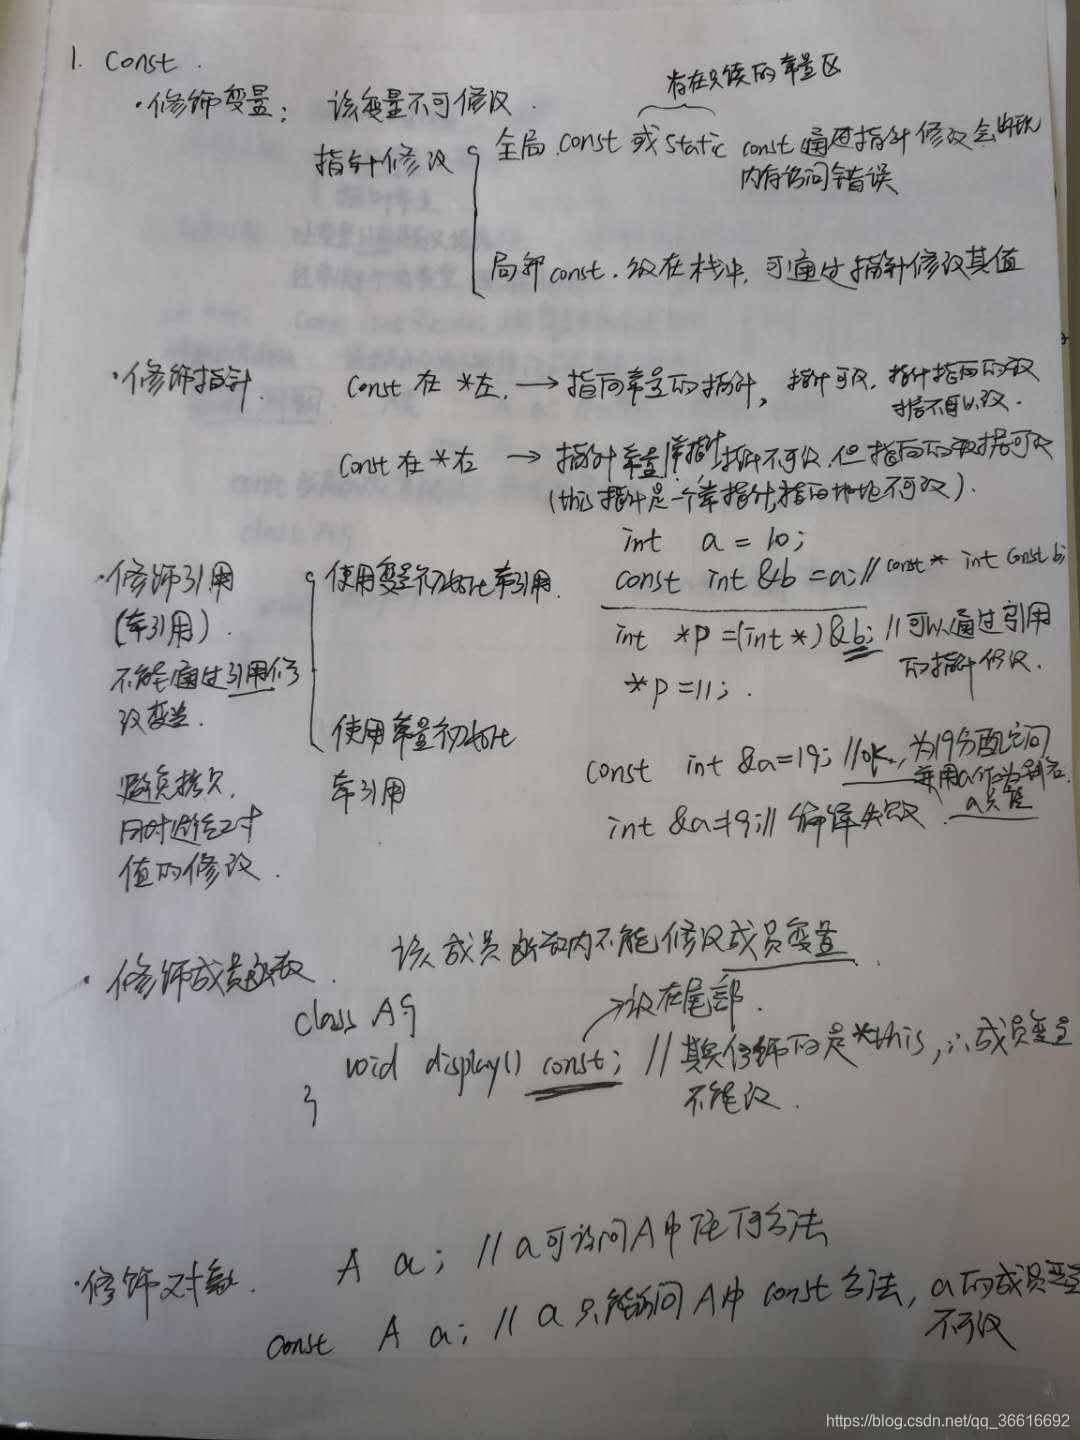 1. Const.
存在只读的常量区
·修饰变量: 该变量不可修改.
指针修改 { 全局 const 或 static const 通过指针修改会出现
内存访问错误
局部 const. 放在栈中, 可通过指针修改其值
·修饰指针. const 在 *左. → 指向常量的指针, 指针可改, 指针指向的数
据不可以改.
const 在 *右 → 指针常量/常指针 指针不可改, 但指向的数据可改
(this指针是一个常指针,指向地址不可改).
int a = 10;
·修饰引用 { 使用变量初始化常引用. const int &b = a; // const * int const b;
(常引用). int *p = (int *) &b; // 可以通过引用
的指针修改.
不能通过引用修
改变量. *p = 11;
使用常量初始化
常引用
const int &a = 19; // ok, 为19分配空间
并用a作为别名.
避免拷贝,
int &a = 19; // 编译失败. a只能
同时避免对
值的修改.
· 修饰成员函数. 该成员函数内不能修改成员变量.
→ 放在尾部.
class A{
void display() const; // 其实修饰的是*this, ∴成员变量
不能改.
}
·修饰对象. A a; // a可访问A中任何方法
const A a; // a只能访问A中 const 方法, a的成员变量
不可改
https://blog.csdn.net/qq_36616692